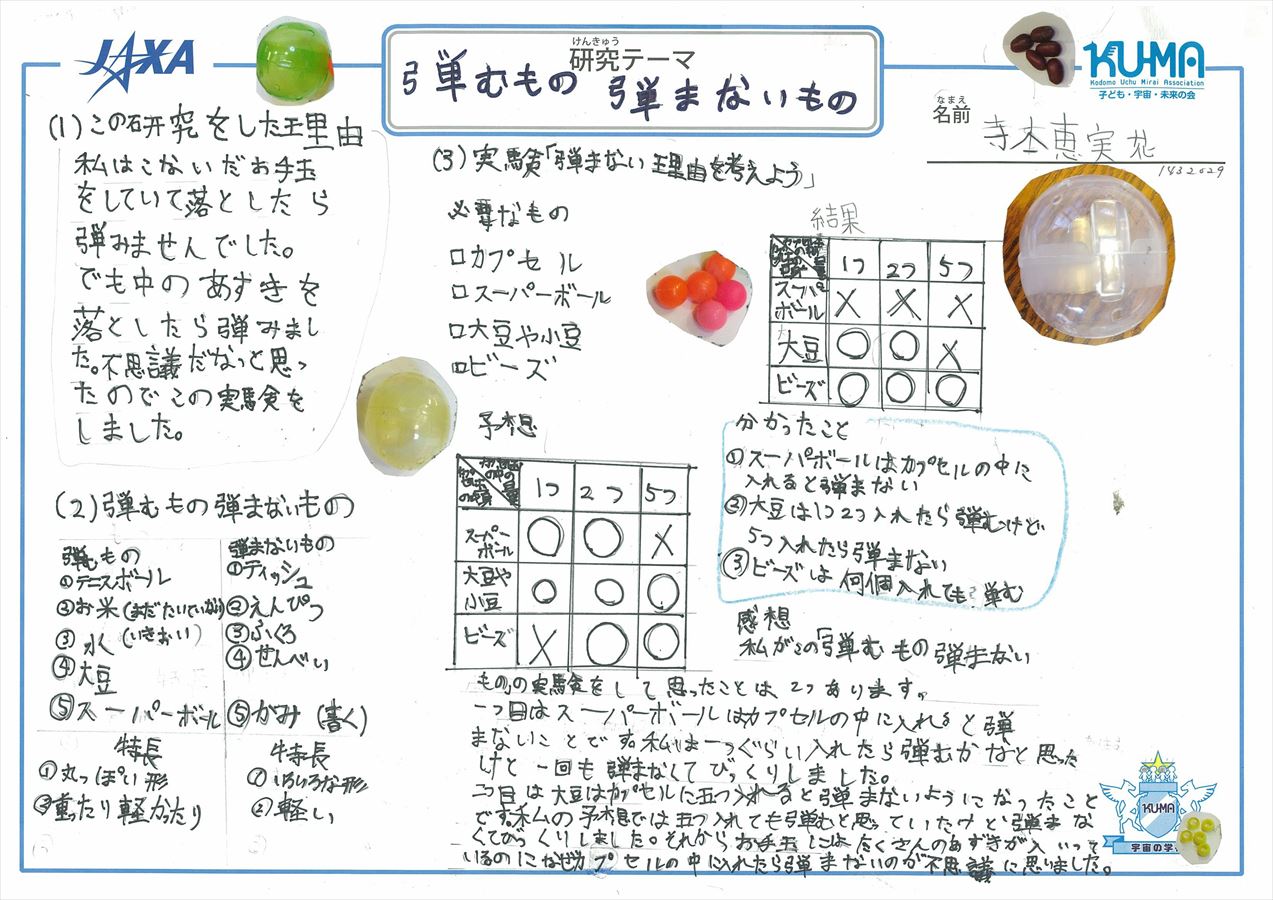 JAXA
けんきゅう
研究テーマ
弾むもの 弾まないもの
KU-MA
Kodomo Uchu Mirai Association
子ども・宇宙・未来の会
なまえ
名前
1432029
(1)この研究をした理由
私はこないだお手玉
をしていて落としたら
弾みませんでした。
でも中のあずきを
落としたら弾みまし
た。不思議だなっと思っ
たのでこの実験を
しました。
(2)弾むもの弾まないもの
弾むもの
①テニスボール
②お米
③水(いきおい)
④大豆
⑤スーパーボール
特長
①丸っぽい形
②重たり軽かたり
弾まないもの
①ティッシュ
②えんぴつ
③ふくろ
④せんべい
⑤かみ(書く)
特長
①いろいろな形
②軽い
(3)実験「弾まない理由を考えよう」
必要なもの
□カプセル
□スーパーボール
□大豆や小豆
□ビーズ
予想
1つ 2つ 5つ
スーパーボール ○ ○ ×
大豆や小豆 ○ ○ ○
ビーズ × ○ ○
結果
1つ 2つ 5つ
スーパボール × × ×
大豆 ○ ○ ×
ビーズ ○ ○ ○
分かったこと
①スーパボールはカプセルの中に
入れると弾まない
②大豆は1つ2つ入れたら弾むけど
5つ入れたら弾まない
③ビーズは何個入れても弾む
感想
私がこの「弾むもの弾まない
もの」の実験をして思ったことは2つあります。
一つ目はスーパーボールはカプセルの中に入れると弾
まないことです。私は一つぐらい入れたら弾むかなと思った
けど一回も弾まなくてびっくりしました。
二つ目は大豆はカプセルに五つ入れると弾まないようになったこと
です。私の予想では五つ入れても弾むと思っていたけど弾まな
くてびっくりしました。それからお手玉にはたくさんのあずきが入いって
いるのになぜカプセルの中に入れたら弾まないのが不思議に思いました。
KU-MA
宇宙の学